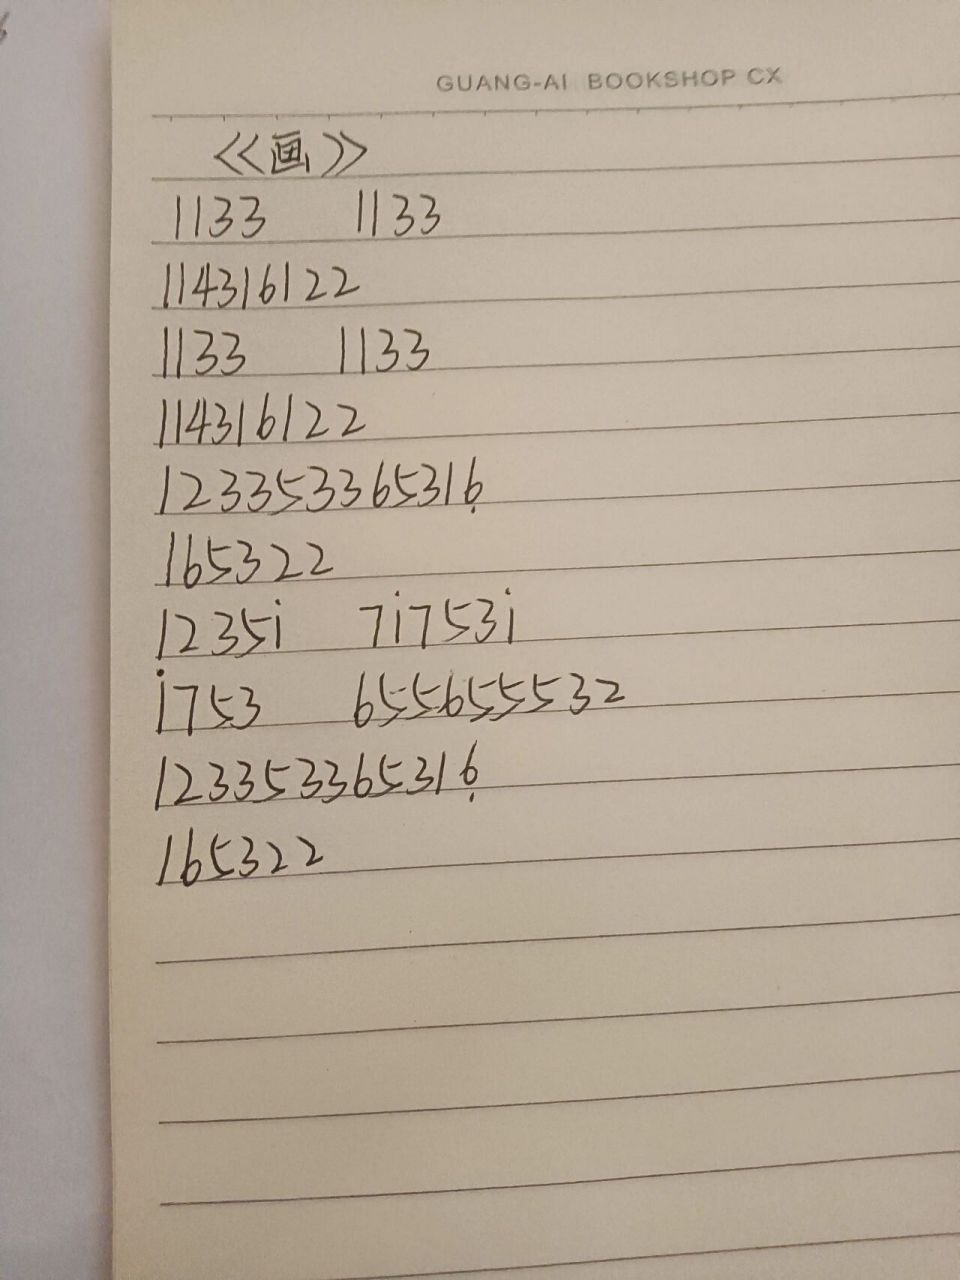 GUANG-AI BOOKSHOP CX
<<画>>
1133 1133
114316122
1133 1133
114316122
123353365316̣
165322
1235i 7i753i
i753 655655532
123353365316̣
165322